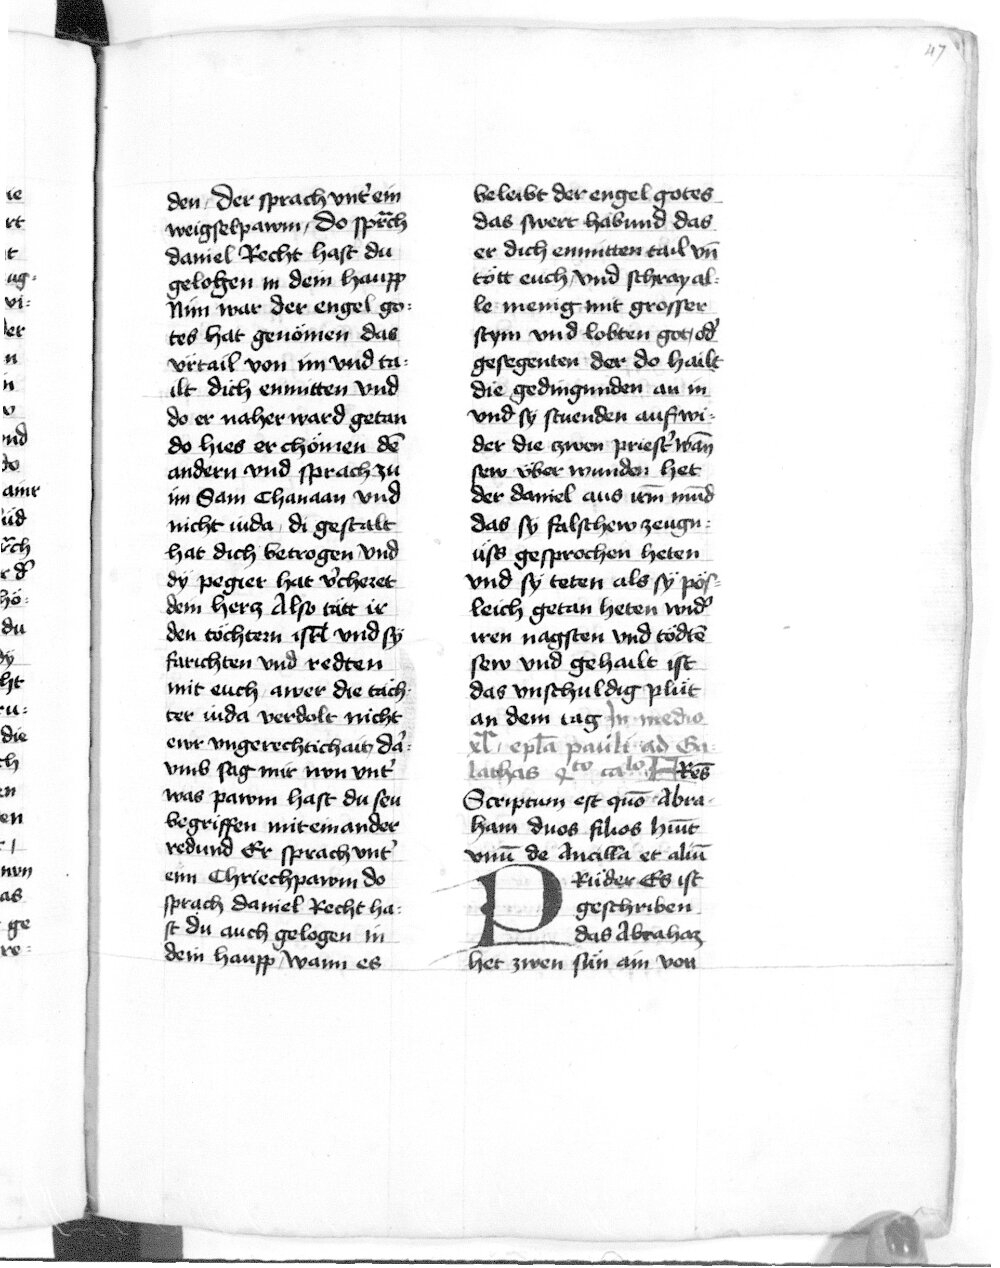 47
den / Der sprach vnt̉ ein
weigselpawm / Do sp̄rch
daniel Recht hast du
gelogen in dein haupp
Nim war der engel go:
tes hat genömen das
vrtail von im vnd ta:
ilt dich enmitten vnd
do er naher ward getan
do hies er chömen dē
andern vnd sprach zu
im Sam Chanaan vnd
nicht iuda / di gestalt
hat dich betrogen vnd
dÿ pegier hat v̉cheret
dein hercz Also tätt ir
den töchtern isr̄l vnd sÿ
farichten vnd redten
mit euch / awer die täch:
ter iuda verdolt nicht
ewr vngerechtichait / dā:
vmb sag mir nvn vnt̉
was pawm hast du seu
begriffen miteinander
redund Er sprach vnt̉
eim Chriechpawm do
sprach daniel Recht ha:
st du auch gelogen in
dein haupp / wann es
beleibt der engel gotes
das swert habund das
er dich enmitten tail vn̄
tött euch / vnd schray al:
le menig mit grosser
stym vnd lobten got / od̉
gesegenten der do hailt
die gedingunden an in
vnd sÿ stuenden auf wi:
der die zwen priest̉ wān
sew vber wunden het
der daniel aus irm̄ mūd
das sÿ falschew zeugn:
üss gesprochen heten
vnd sÿ teten als sÿ pös:
leich getan heten wid̉
iren nagsten vnd tödtē
sew vnd gehailt ist
das vnschuldig plüt
an dem tag In medio
xl̄ / ep̄la pauli ad Ga:
lathas qto calo FRēs
Scriptum est quō Abra:
ham duos filios hūit
vnū de Ancilla et aliū
PRüder Es ist
geschriben
das Abrahaz
het zwen sün ain von